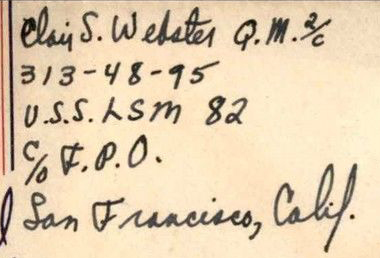 Clair S. Webster Q.M. 2/c
313-48-95
U.S.S. LSM 82
c/o F.P.O.
San Francisco, Calif.